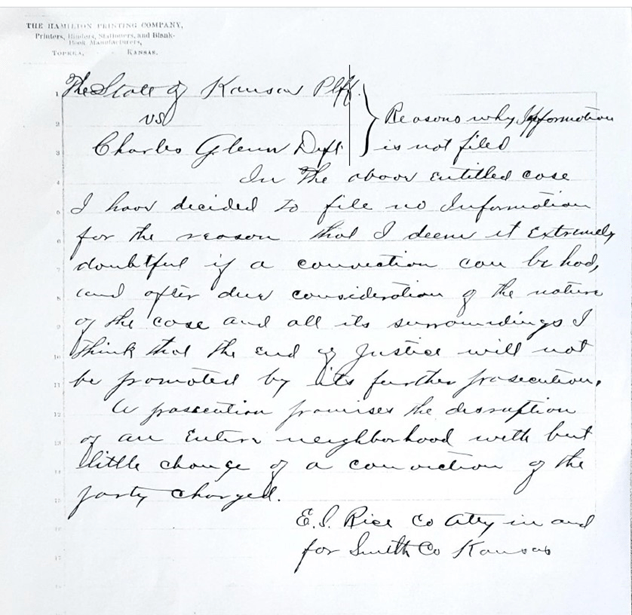 THE HAMILTON PRINTING COMPANY,
Printers, Binders, Stationers, and Blank-
Book Manufacturers,
TOPEKA, KANSAS.
The State of Kansas Plff.
vs
Charles Glenn Deft.
Reasons why Information
is not filed
In the above entitled case
I have decided to file no Information
for the reason that I deem it Extremely
doubtful if a conviction can be had,
and after due consideration of the nature
of the case and all its surroundings I
think that the end of Justice will not
be promoted by its further prosecution.
A prosecution promises the disruption
of an Entire neighborhood with but
little change of a conviction of the
party charged.
E. S. Rice Co Atty in and
for Smith Co Kansas
1
2
3
4
5
6
7
8
9
10
11
12
13